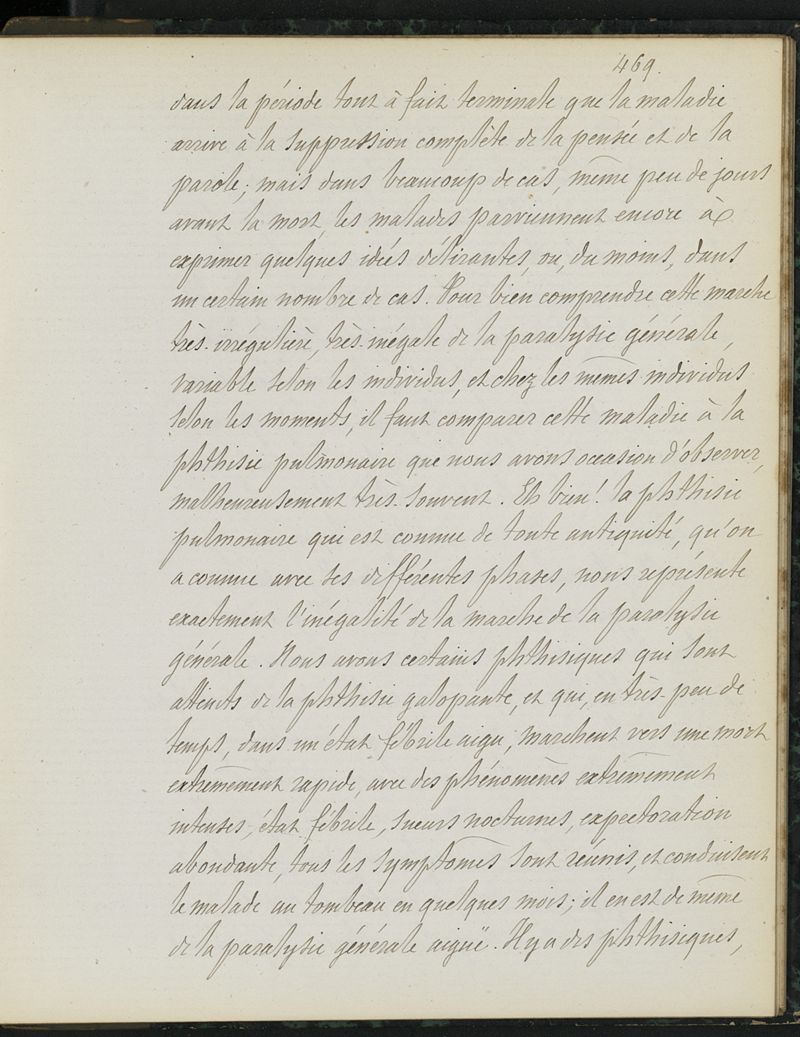 469.
dans la période tout à fait terminale que la maladie
arrive à la suppression complète de la pensée et de la
parole; mais dans beaucoup de cas, même peu de jours
avant la mort, les malades parviennent encore à
exprimer quelques idées délirantes, ou, du moins, dans
un certain nombre de cas. Pour bien comprendre cette marche
très-irrégulière, très-inégale de la paralysie générale,
variable selon les individus, et chez les mêmes individus
selon les moments, il faut comparer cette maladie à la
phthisie pulmonaire que nous avons occasion d'observer,
malheureusement très-souvent. Eh bien! la phthisie
pulmonaire qui est connue de toute antiquité, qu'on
a connue avec ses différentes phases, nous représente
exactement l'inégalité de la marche de la paralysie
générale. Nous avons certains phthisiques qui sont
atteints de la phthisie galopante, et qui, en très-peu de
temps, dans un état fébrile aigu, marchent vers une mort
extrêmement rapide, avec des phénomènes extrêmement
intenses, état fébrile, sueurs nocturnes, expectoration
abondante, tous les symptômes sont réunis, et conduisent
le malade au tombeau en quelques mois; il en est de même
de la paralysie générale aiguë. Il y a des phthisiques,